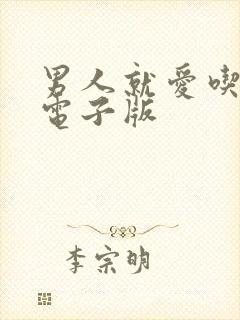 男人就愛喫
電子版
李宗明